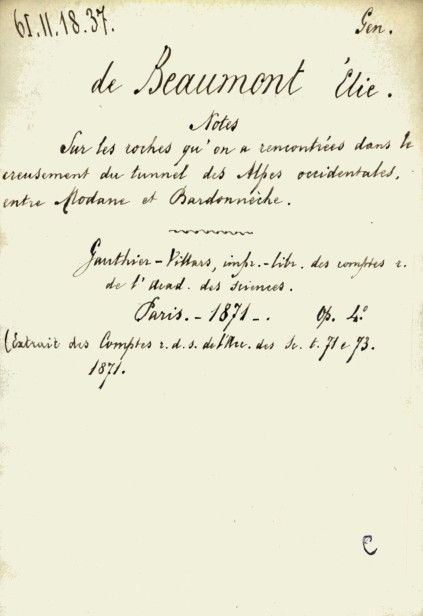 61.11.18.37.
Gen.
de Beaumont Élie.
Notes
Sur les roches qu'on a rencontrées dans le
creusement du tunnel des Alpes occidentales,
entre Modane et Bardonnèche.
Gauthier-Villars, impr.-libr. des comptes r.
de l'Acad. des sciences.
Paris. - 1871 -. Op. 4.°
(Extrait des Comptes r. d. s. de l'Ac. des Sc. t. 71 e 73.
1871.
C